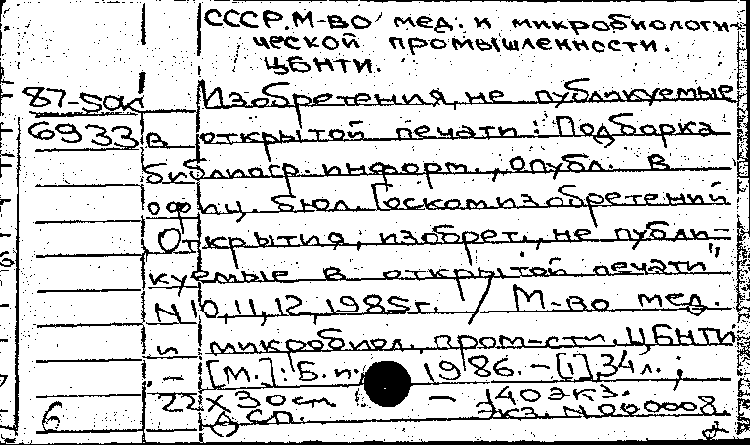 СССР. М-во мед. и микробиологи-
ческой промышленности.
ЦБНТИ.
87-50к Изобретения, не публикуемые
6933 в открытой печати: Подборка
библиогр. информ., опубл. в
офиц. бюл. Госкомизобретений
„Открытия, изобрет., не публи-
куемые в открытой печати"
N 10, 11, 12, 1985г. / М-во мед.
и микробиол. пром-сти. ЦБНТИ
.- [М.]: Б.и. 1986. - [1], 34 л.;
22 х 30 см - 140 экз.
6 ДСП. Экз. N 000008.